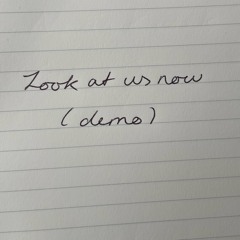 Look at us now
(demo)